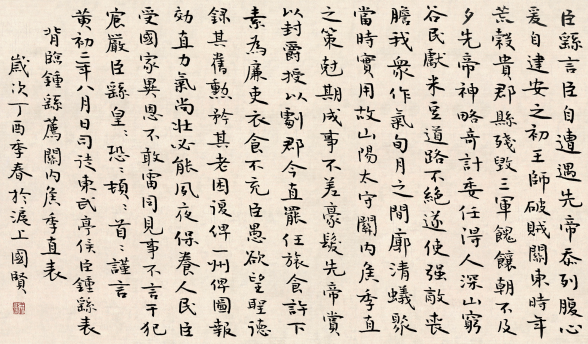 臣繇言臣自遭遇先帝忝列腹心
爰自建安之初王師破賊關東時年
荒穀貴郡縣殘毀三軍餽饟朝不及
夕先帝神略奇計委任得人深山窮
谷民獻米豆道路不絕遂使強敵喪
膽我眾作氣旬月之間廓清蟻聚
當時實用故山陽太守關內侯季直
之策尅期成事不差豪髮先帝賞
以封爵授以劇郡今直罷任旅食許下
素為廉吏衣食不充臣愚欲望聖德
錄其舊勳矜其老困復俾一州俾圖報
效直力氣尚壯必能夙夜保養人民臣
受國家異恩不敢雷同見事不言干犯
宸嚴臣繇皇恐〻頓〻首〻謹言
黃初二年八月日司徒東武亭侯臣鍾繇表
背臨鍾繇薦關內侯季直表
歲次丁酉季春於滬上國賢